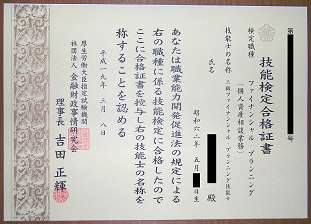 第
号
技能検定合格証書
検定職種
ファイナンシャル プランニング
(個人資産相談業務)
技能士の名称
二級ファイナンシャル・プランニング技能士
氏名
殿
昭和六二年 五月 日生
あなたは職業能力開発促進法の規定による
右の職種に係る技能検定に合格したので
ここに合格証書を授与し右の技能士の名称を
称することを認める
平成一九年 三月 八日
厚生労働大臣指定試験機関
社団法人 金融財政事情研究会
理事長 吉田正輝